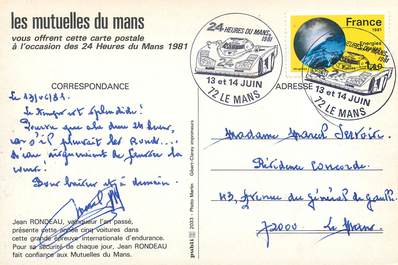 les mutuelles du mans
vous offrent cette carte postale
à l'occasion des 24 Heures du Mans 1981
24 HEURES DU MANS
1981
13 et 14 JUIN
72 LE MANS
France
1981
Energies
1,40
HEURES DU MANS
1981
13 et 14 JUIN
72 LE MANS
CORRESPONDANCE
ADRESSE
Le 13/06/81.
Le temps est splendide!
Pourvu que cela dure 24 heures,
car s'il pleuvait les
coeur!
Bons baisers et à demain.
Jean RONDEAU, vainqueur l'an passé,
présente cette année cinq voitures dans
cette grande épreuve internationale d'endurance.
Pour sa sécurité de chaque jour, Jean RONDEAU
fait confiance aux Mutuelles du Mans.
Photo Martin
Gibert-Clarey imprimeurs
Madame Marcel
Résidence Concorde.
43, Avenue du Général de Gaulle
72000 Le Mans